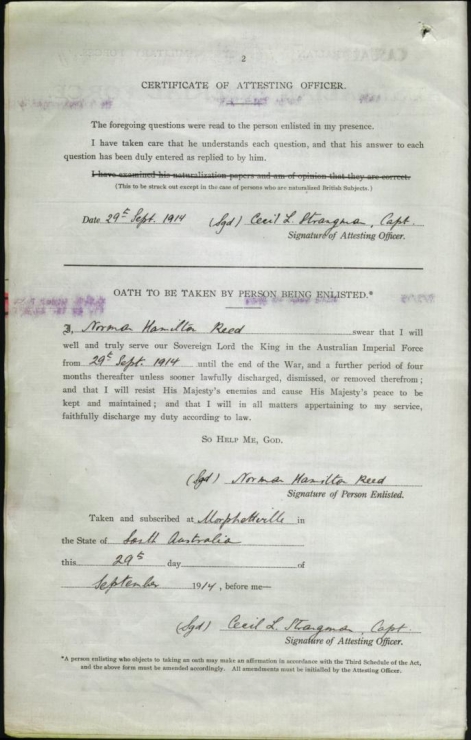 2
CERTIFICATE OF ATTESTING OFFICER.
The foregoing questions were read to the person enlisted in my presence.
I have taken care that he understands each question, and that his answer to each
question has been duly entered as replied to by him.
I have examined his naturalization papers and am of opinion that they are correct.
(This to be struck out except in the case of persons who are naturalized British Subjects.)
Date 29th Sept. 1914 (Sgd) Cecil L Strangman, Capt.
Signature of Attesting Officer.
OATH TO BE TAKEN BY PERSON BEING ENLISTED.*
I, Norman Hamilton Reed swear that I will
well and truly serve our Sovereign Lord the King in the Australian Imperial Force
from 29th Sept. 1914 until the end of the War, and a further period of four
months thereafter unless sooner lawfully discharged, dismissed, or removed therefrom;
and that I will resist His Majesty's enemies and cause His Majesty's peace to be
kept and maintained; and that I will in all matters appertaining to my service,
faithfully discharge my duty according to law.
SO HELP ME, GOD.
(Sgd) Norman Hamilton Reed
Signature of Person Enlisted.
Taken and subscribed at Morphettville in
the State of South Australia
this 29th day of
September 1914, before me—
(Sgd) Cecil L Strangman, Capt.
Signature of Attesting Officer.
*A person enlisting who objects to taking an oath may make an affirmation in accordance with the Third Schedule of the Act,
and the above form must be amended accordingly. All amendments must be initialled by the Attesting Officer.